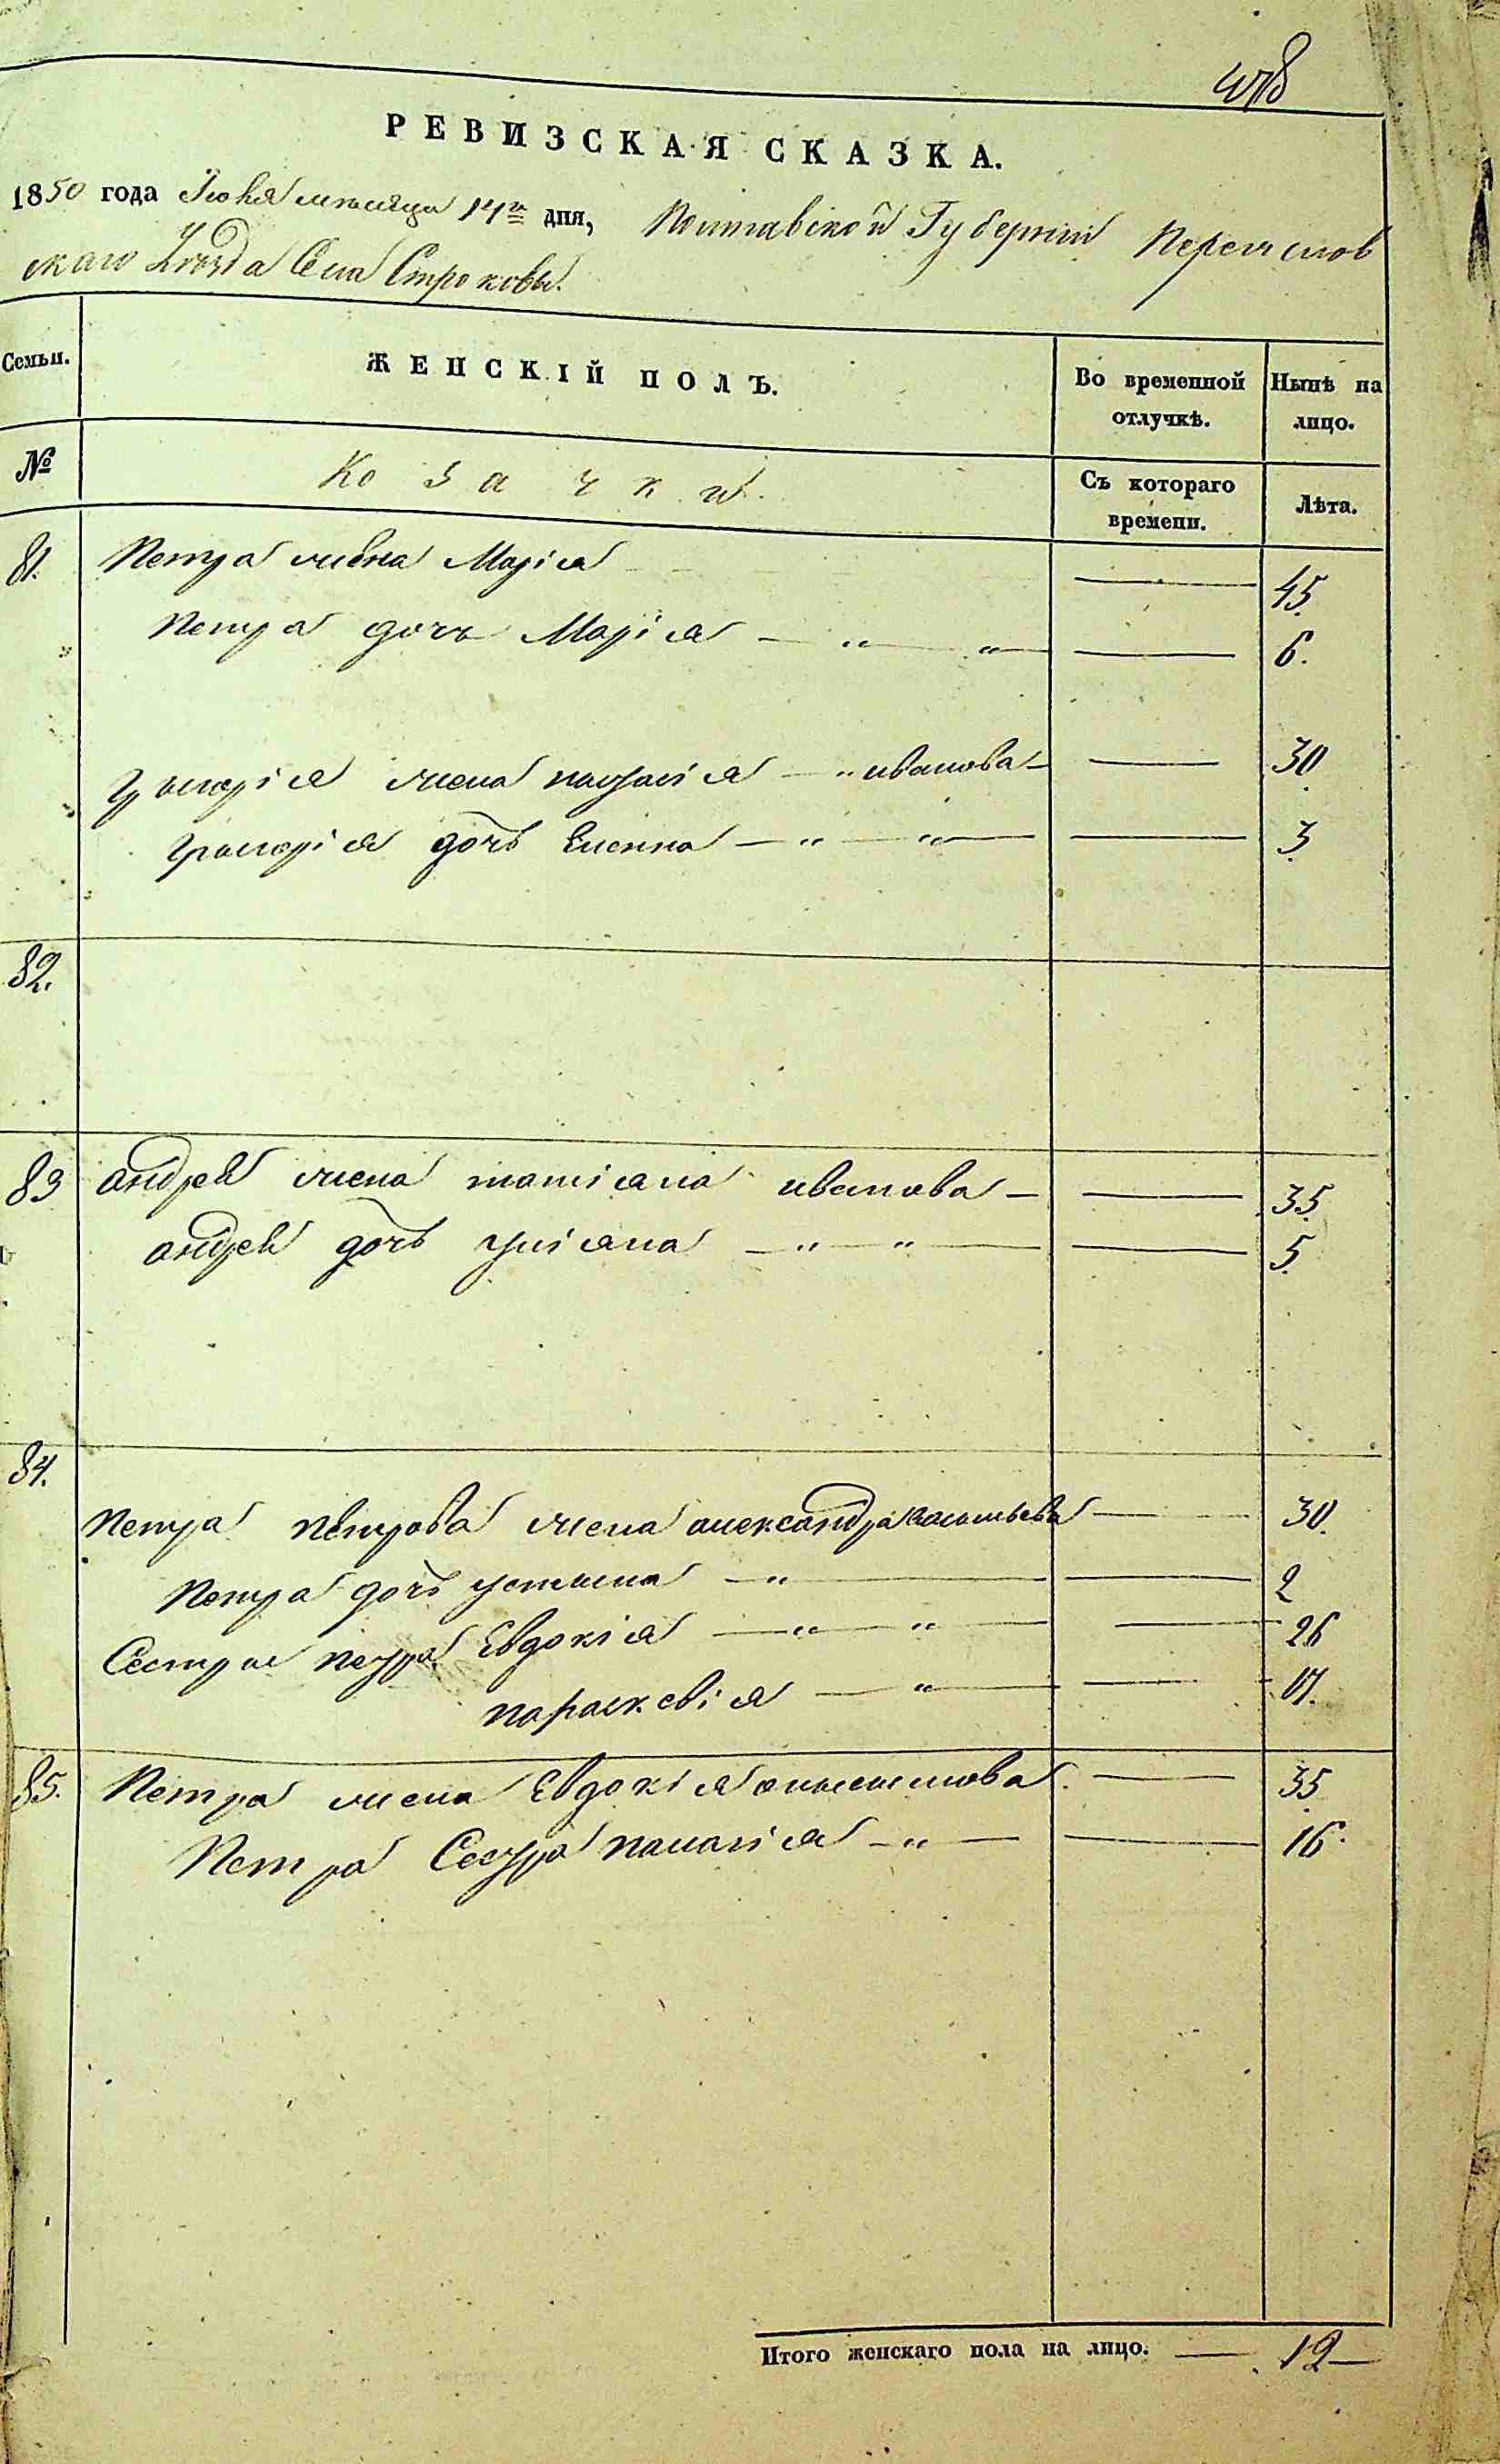 478
РЕВИЗСКАЯ СКАЗКА.
1850 года Іюня месяца 14го дня, Полтавской Губерніи Переяслов
скаго Уезда Села Строковы.
Семьи. ЖЕНСКІЙ ПОЛЪ. Во временной отлучкѣ. Нынѣ на лицо.
№ Козачки. Съ котораго времени. Лѣта.
81. Петра жена Марія — 45.
Петра дочь Марія — " — " — — 6.
Григорія жена " иванова — — 30.
Григорія дочъ Елена — " — " — — 3.
82.
83 андрея жена татіана иванова — — 35.
андрея дочъ уліана — " — " — — 5.
84.
Петра Петрова жена александра васильева — 30.
Петра дочъ устина — " — — 2
Сестры петра Евдокія — " — " — — 26
параскевія — " — — 17.
85. Петра жена Евдокія — 35
Петра Сестра палагія — " — — 16.
Итого женскаго пола на лицо. — 12 —